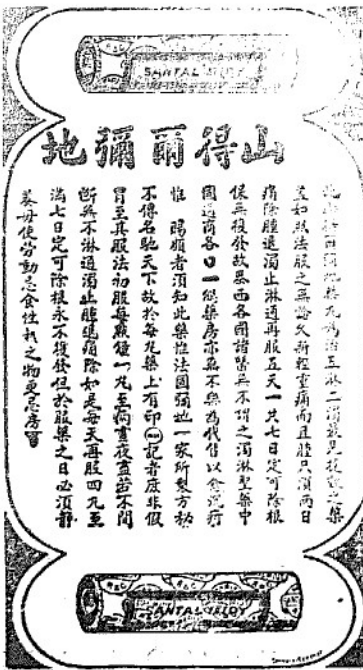 SANTAL MIDY
山得爾彌地
此山得爾彌地藥丸為治五淋二濁最見投効之藥
並如照法服之無論久新輕重痛而且腫只須兩日
痛除腫退濁止淋通再服五天一共七日定可除根
保無復發故泰西各國諸醫無不謂之濁淋聖藥中
國通商各口一經藥房亦無不樂為代售以全沉疴
惟 賜顧者須知此藥惟法國彌地一家所製方秘
不傳名馳天下故於每丸藥上有印 記者庶非假
冒至其服法初服每點鐘一丸至病晝夜盡若不間
斷無不淋通濁止腫退痛除如是每天再服四丸至
滿七日定可除根永不復發但於服藥之日必須靜
養毋使勞動忌食性熱之物更忌房事
SANTAL MIDY